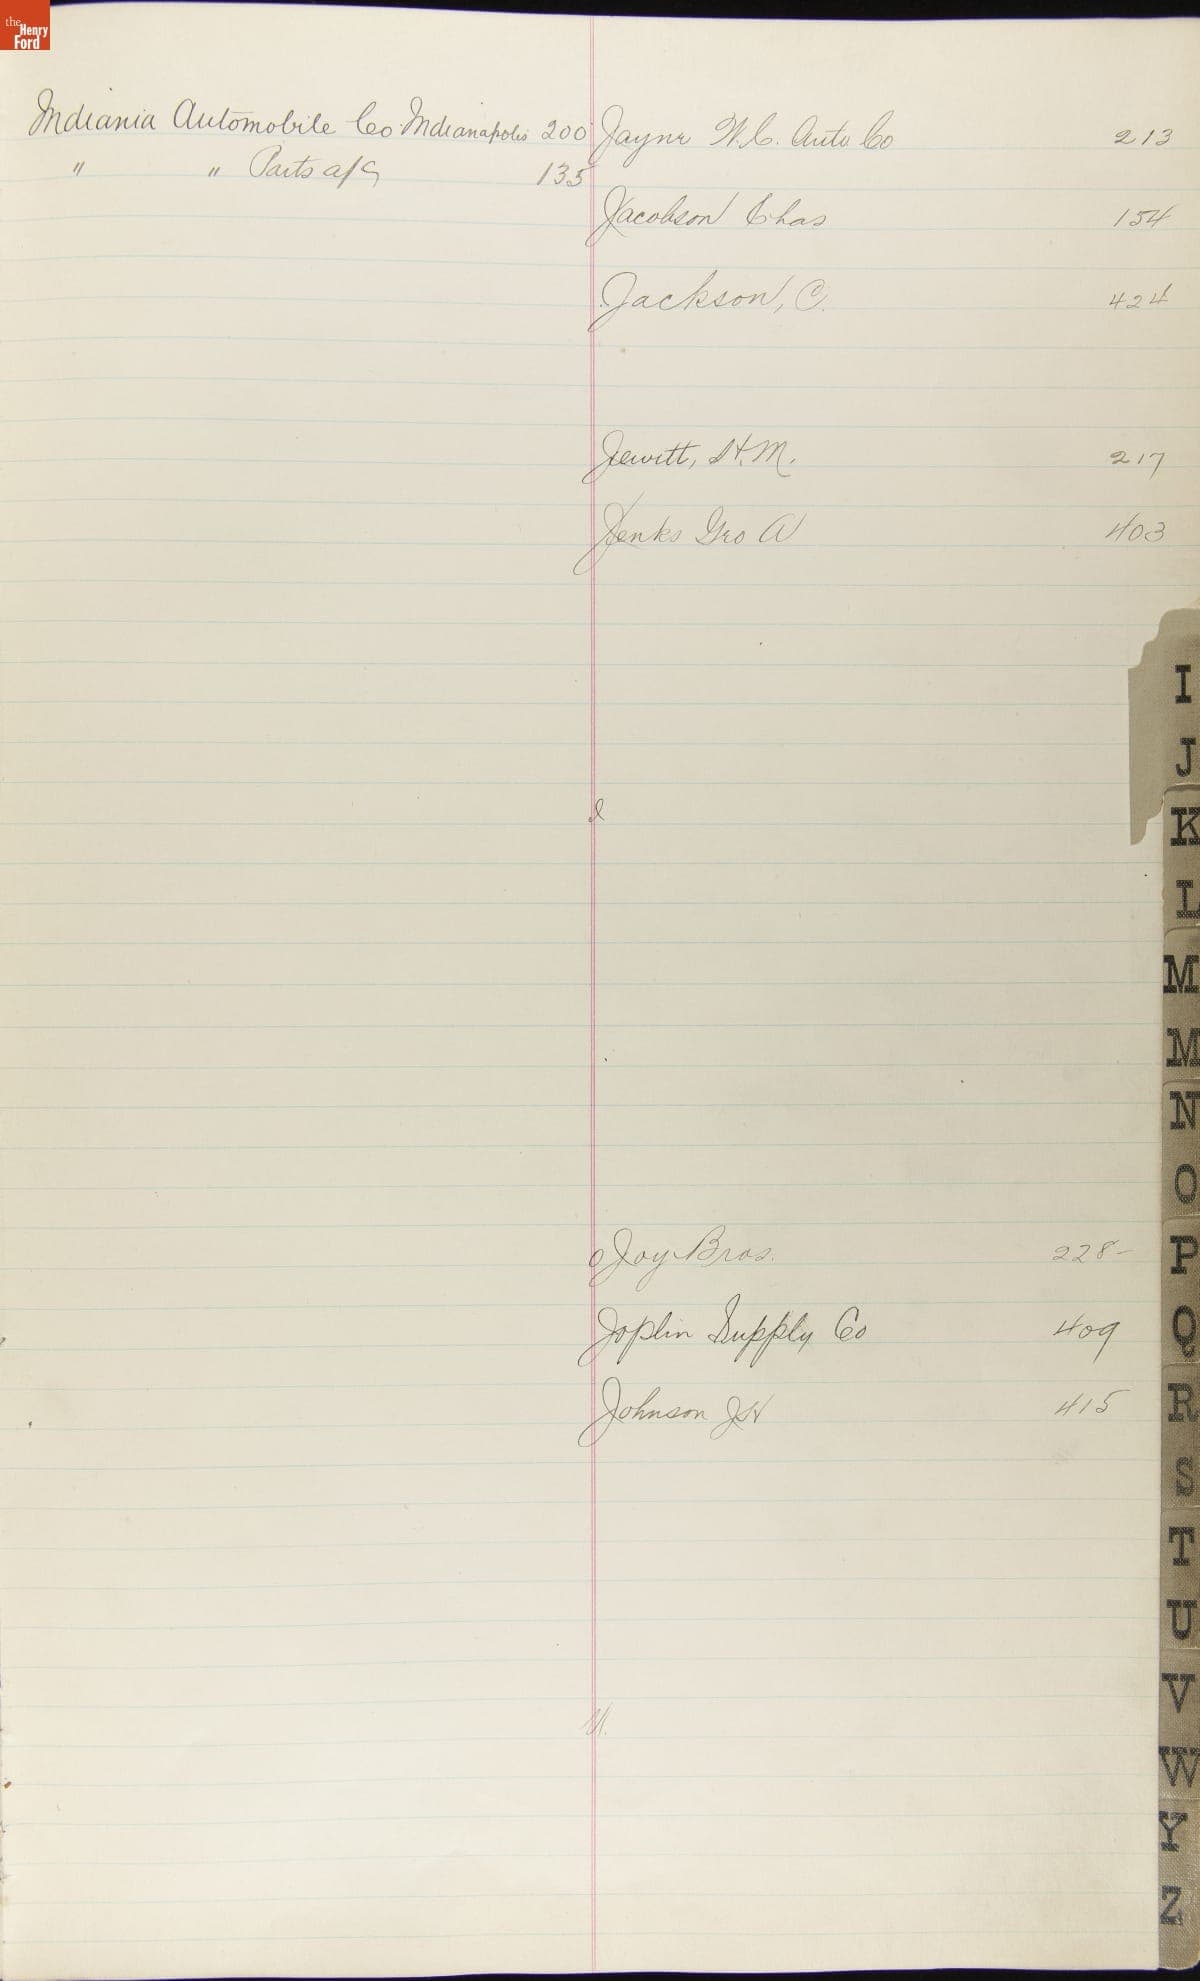 the Henry Ford
Indiania Automobile Co. Indianapolis 200
" " Parts a/c 135
Jayne W.C. Auto Co 213
Jacobson Chas 154
Jackson, C. 424
Jewitt, H.M. 217
Jenks Geo A 403
Joy Bros. 228-
Joplin Supply Co 409
Johnson JH 415
I
J
K
L
M
M
N
O
P
Q
R
S
T
U
V
W
Y
Z